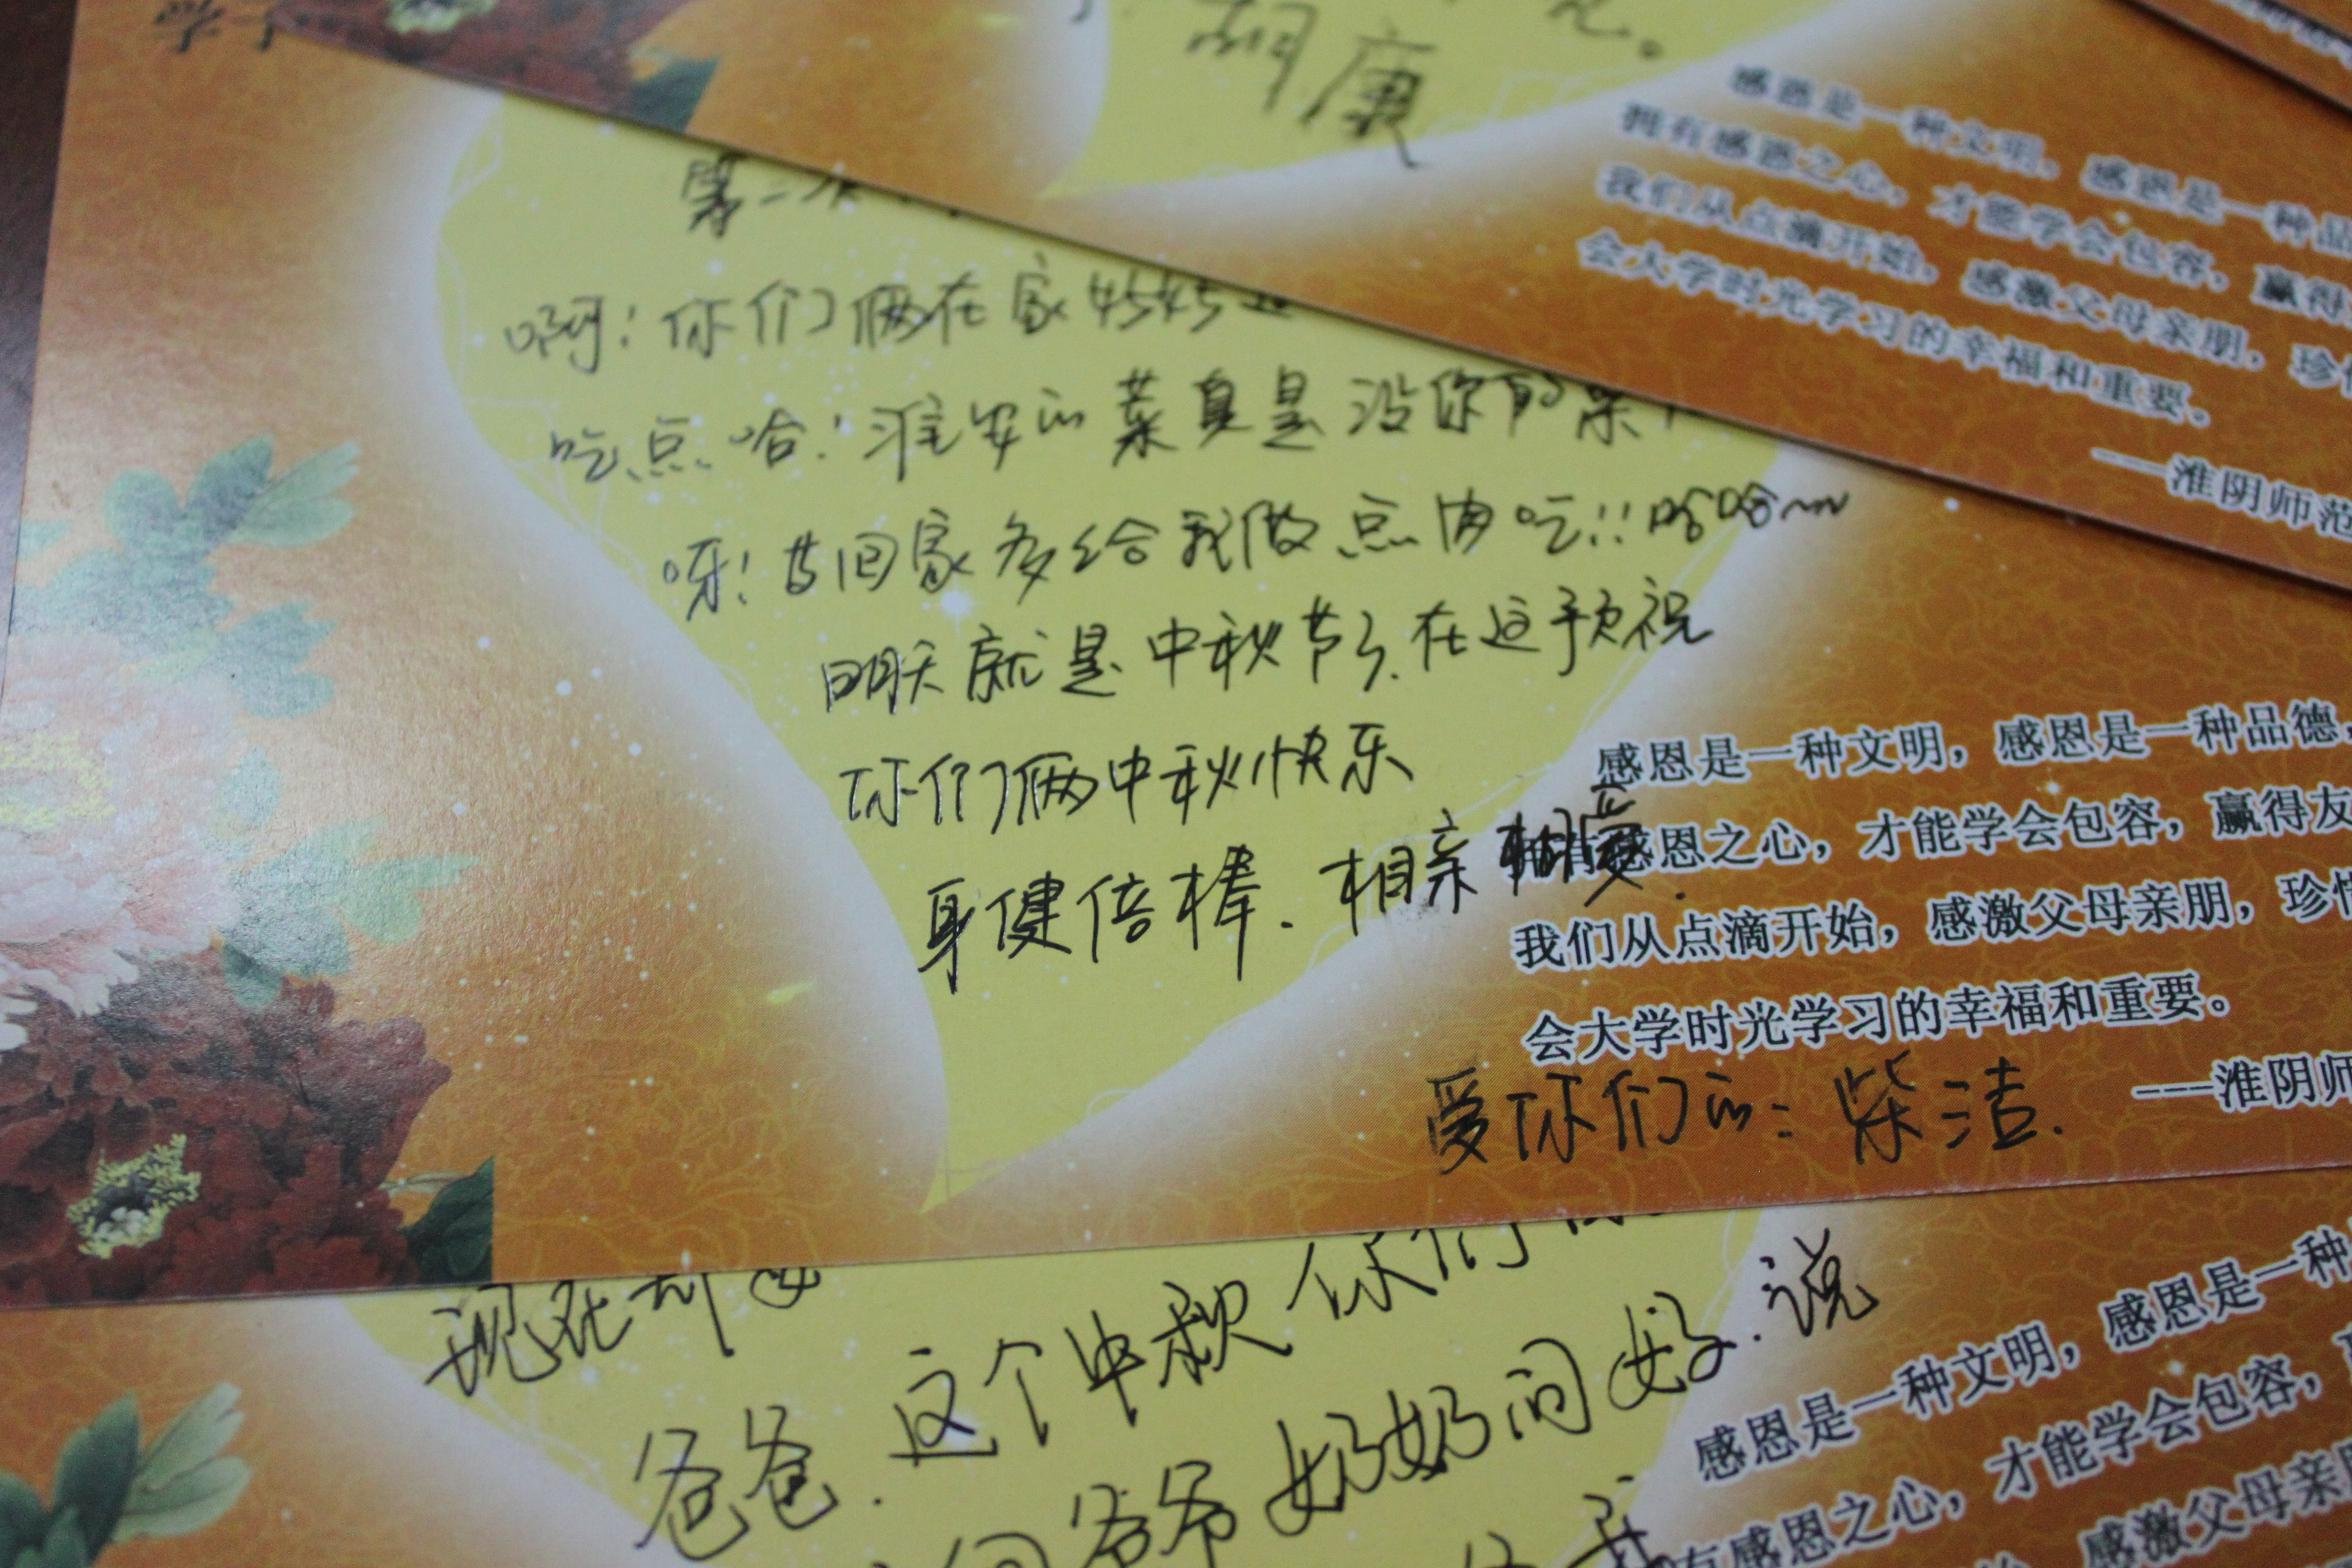 胡康
感恩是一种文明，感恩是一种品
拥有感恩之心，才能学会包容，赢得
我们从点滴开始，感激父母亲朋，珍惜
会大学时光学习的幸福和重要。
---淮阴师范
第一次
啊！你们俩在家好好
吃点哈！淮安的菜真是没你的菜
呀！其回家多给我做点肉吃!!哈哈~~
明天就是中秋节了.在这予页祝
你们俩中秋快乐
身健倍棒.相亲相爱.
感恩是一种文明，感恩是一种品德，
拥有感恩之心，才能学会包容，赢得友
我们从点滴开始，感激父母亲朋，珍惜
会大学时光学习的幸福和重要。
---淮阴师
爱你们的：柴洁.
现在
爸爸.这个中秋你们
向爷爷奶奶问好.说
感恩是一种文明，感恩是一种
有感恩之心，才能学会包容，
感激父母亲朋